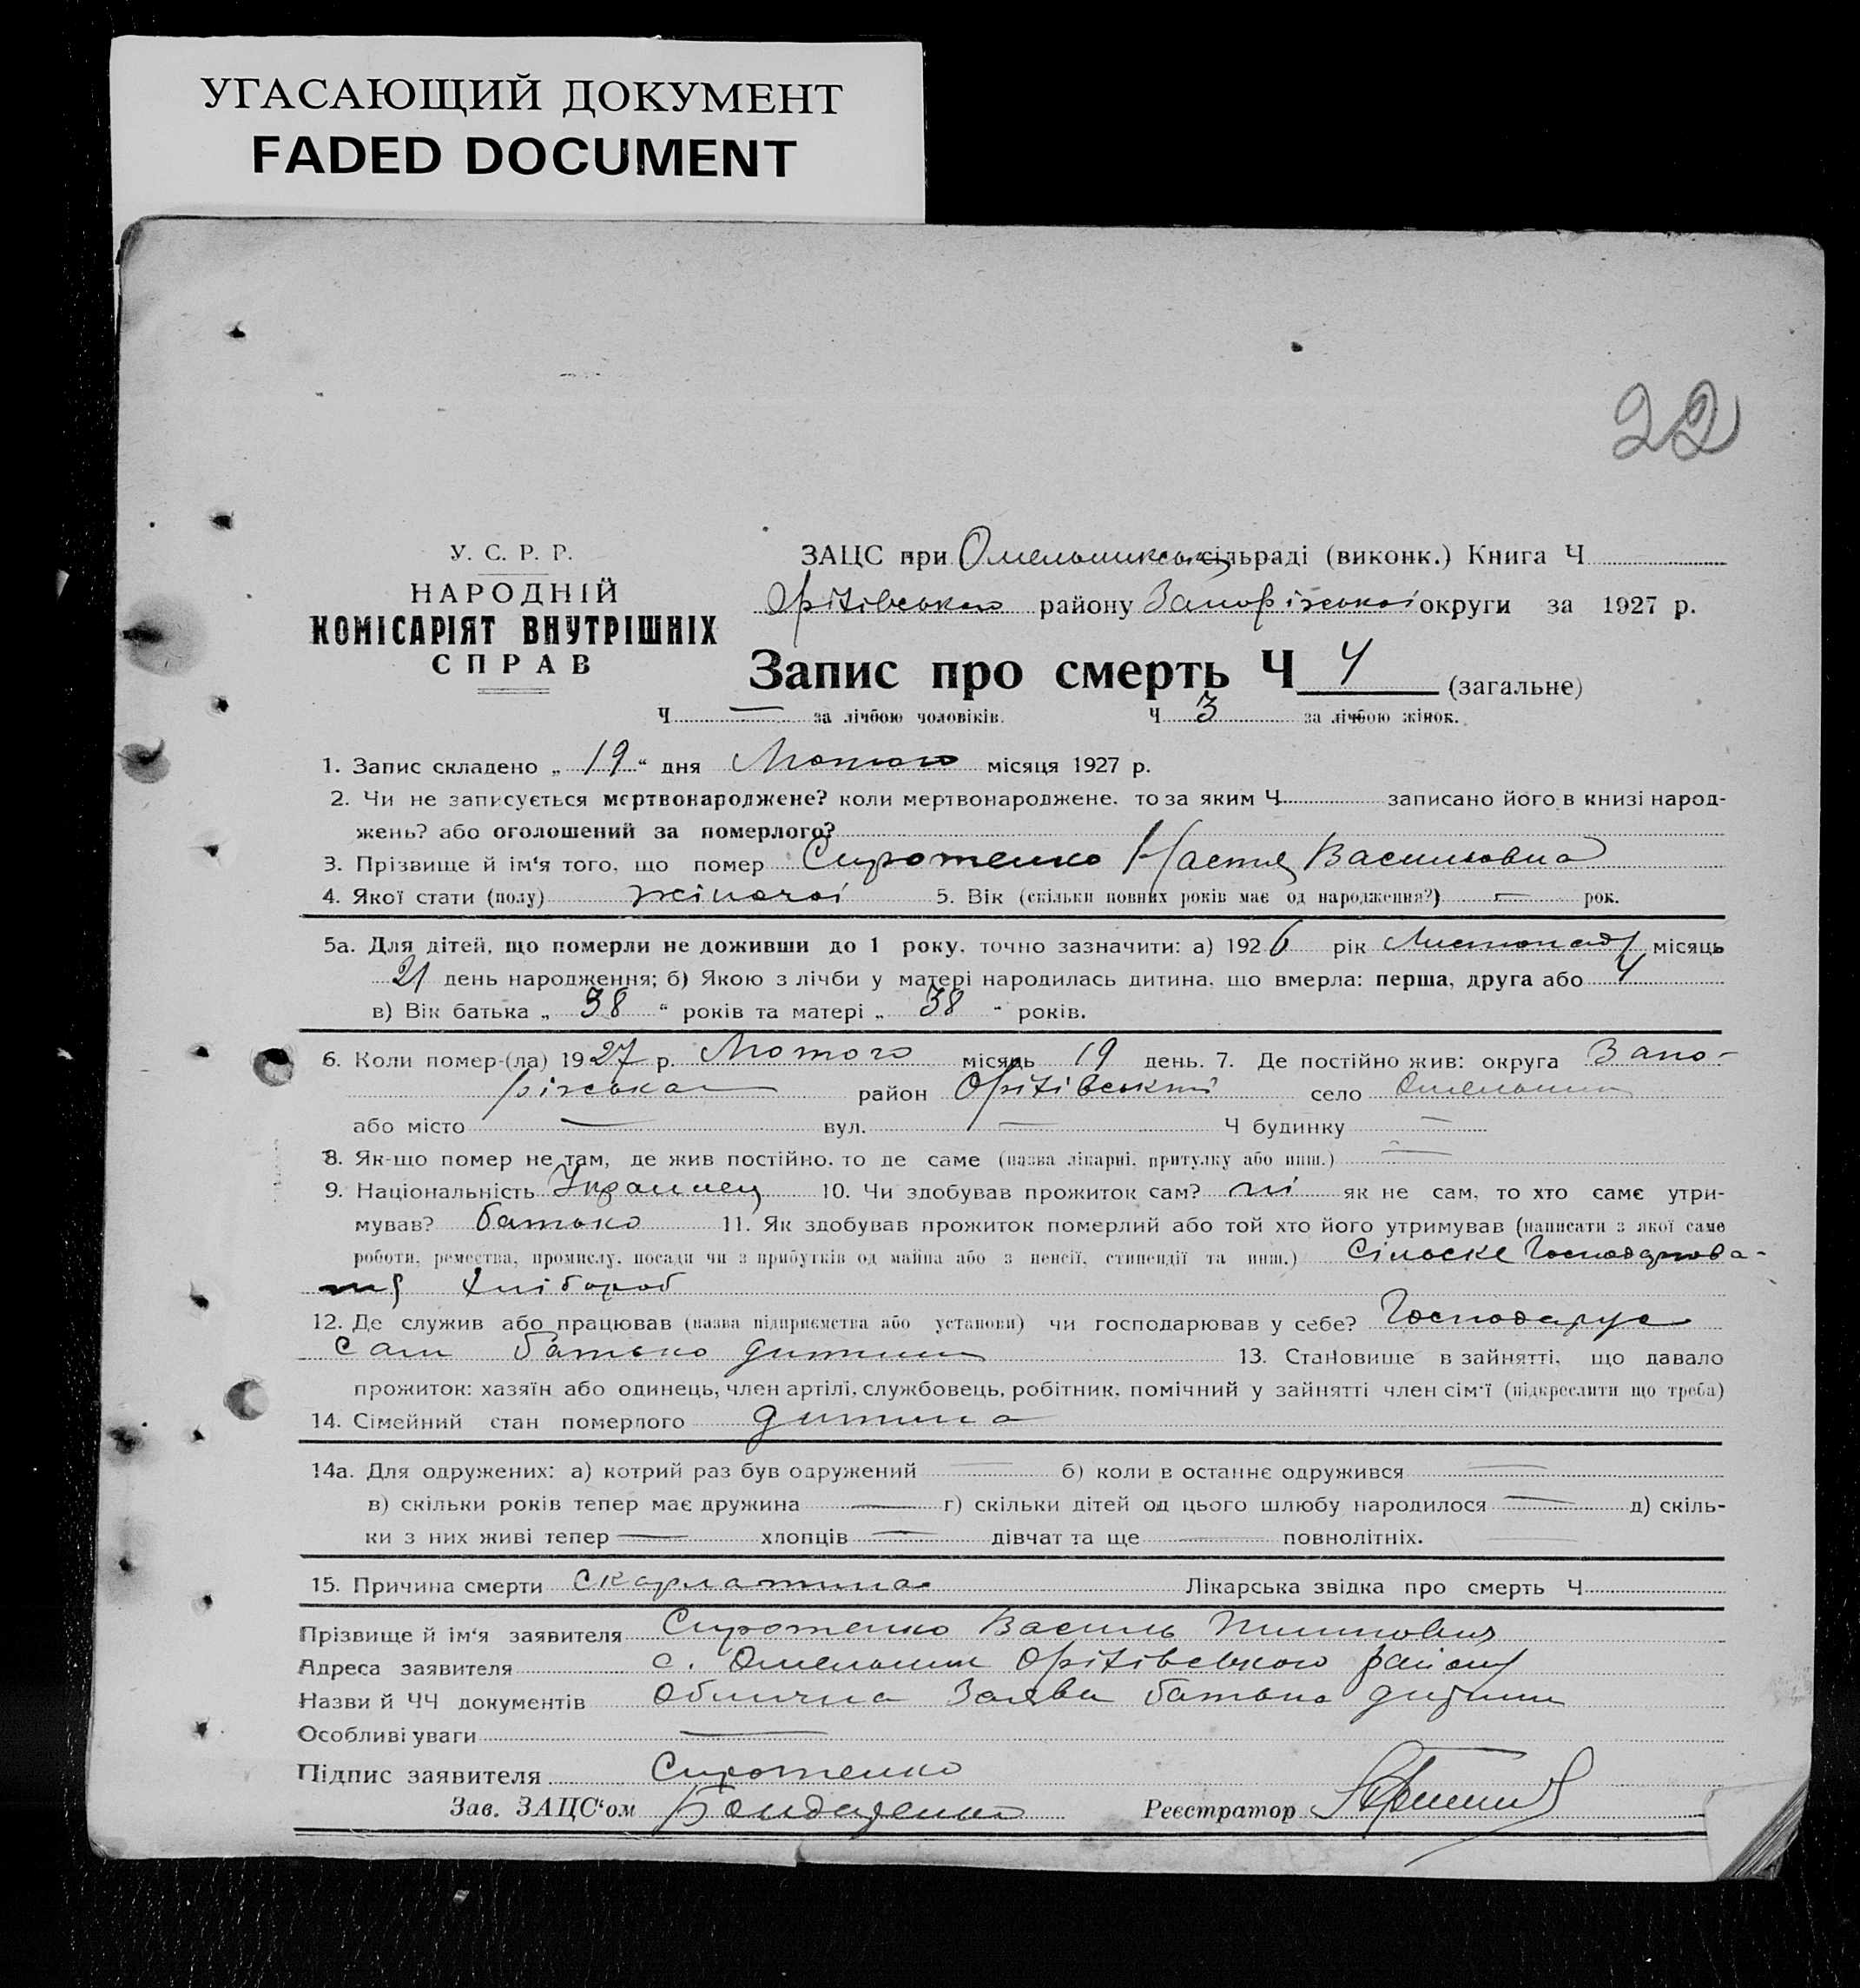 УГАСАЮЩИЙ ДОКУМЕНТ
FADED DOCUMENT
22
У. С. Р. Р.
НАРОДНІЙ
КОМІСАРІЯТ ВНУТРІШНІХ
СПРАВ
ЗАЦС при Омельникськ сільраді (виконк.) Книга Ч
Оріхівського району Запорізької округи за 1927 р.
Запис про смерть Ч 4 (загальне)
Ч — за лічбою чоловіків. Ч 3 за лічбою жінок.
1. Запис складено „ 19 “ дня Лютого місяця 1927 р.
2. Чи не записується мертвонароджене? коли мертвонароджене, то за яким Ч записано його в книзі народ-
жень? або оголошений за померлого?
3. Прізвище й ім‘я того, що помер Сиротенко Настя Васильовна
4. Якої стати (полу) жіночої 5. Вік (скільки повних років має од народження?) — рок.
5а. Для дітей, що померли не доживши до 1 року, точно зазначити: а) 1926 рік Листопад місяць
21 день народження; б) Якою з лічби у матері народилась дитина, що вмерла: перша, друга або 4
в) Вік батька „ 38 “ років та матері „ 38 “ років.
6. Коли помер-(ла) 1927 р. Лютого місяць 19 день. 7. Де постійно жив: округа Запо-
різька район Оріхівський село Омельник
або місто — вул. — Ч будинку —
8. Як-що помер не там, де жив постійно, то де саме (назва лікарні, притулку або инш.) —
9. Національність Украинец 10. Чи здобував прожиток сам? ні як не сам, то хто саме утри-
мував? батько 11. Як здобував прожиток померлий або той хто його утримував (написати з якої саме
роботи, ремества, промислу, посади чи з прибутків од майна або з пенсії, стипендії та инш.) Сільске Господарюва-
ня Хлібороб
12. Де служив або працював (назва підприємства або установи) чи господарював у себе? Господарує
Сам батько дитини 13. Становище в зайнятті, що давало
прожиток: хазяїн або одинець, член артілі, службовець, робітник, помічний у зайнятті член сім‘ї (підкреслити що треба)
14. Сімейний стан померлого дитина
14а. Для одружених: а) котрий раз був одружений — б) коли в останнє одружився —
в) скільки років тепер має дружина — г) скільки дітей од цього шлюбу народилося — д) скіль-
ки з них живі тепер — хлопців — дівчат та ще — повнолітніх. —
15. Причина смерти Скарлатина Лікарська звідка про смерть Ч
Прізвище й ім‘я заявителя Сиротенко Василь
Адреса заявителя с. Омельник Оріхівського району
Назви й ЧЧ документів Обична Заява батька дитини
Особливі уваги —
Підпис заявителя Сиротенко
Зав. ЗАЦС‘ом Бондаренко Реєстратор